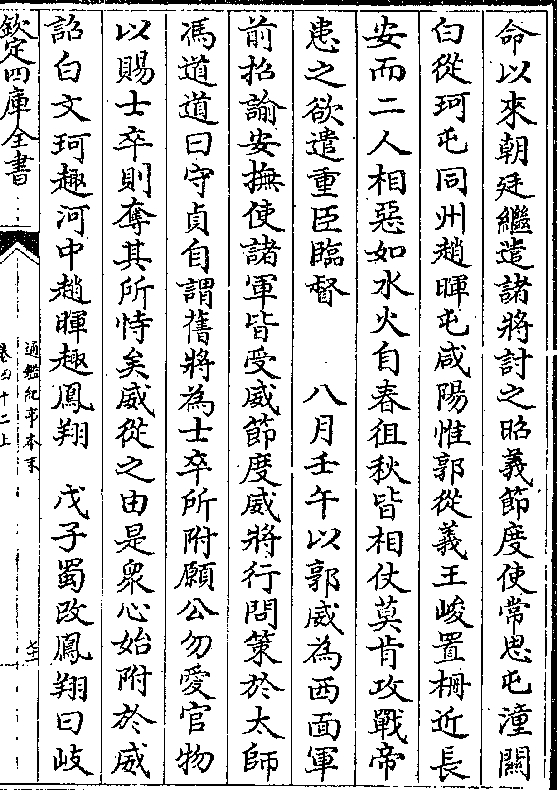 命以來朝廷繼遣諸將討之昭義節度使常思屯潼關
白從珂屯同州趙暉屯咸陽惟郭從義王峻置柵近長
安而二人相惡如水火自春徂秋皆相仗莫肯攻戰帝
患之欲遣重臣臨督　八月壬午以郭威為西面軍
前招諭安撫使諸軍皆受威節度威將行問策於太師
馮道道曰守貞自謂舊將為士卒所附願公勿愛官物
以賜士卒則奪其所恃矣威從之由是衆心始附於威
詔白文珂趣河中趙暉趣鳳翔　戊子蜀改鳳翔曰岐
欽定四庫全書
通鑑紀事本末
卷四十二上